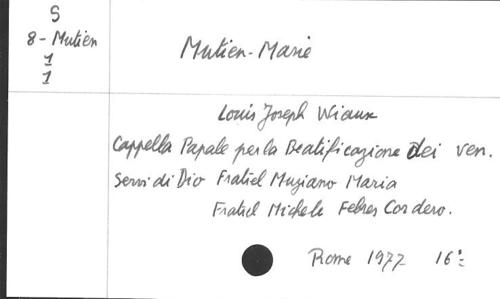 S
8 - Mutien
1
1
Mutien-Marie
Louis Joseph Wiaux
Cappella Papale per la Beatificazione dei ven.
Servi di Dio Fratel Muziano Maria
Fratel Michele Febres Cordero.
Rome 1977 16°